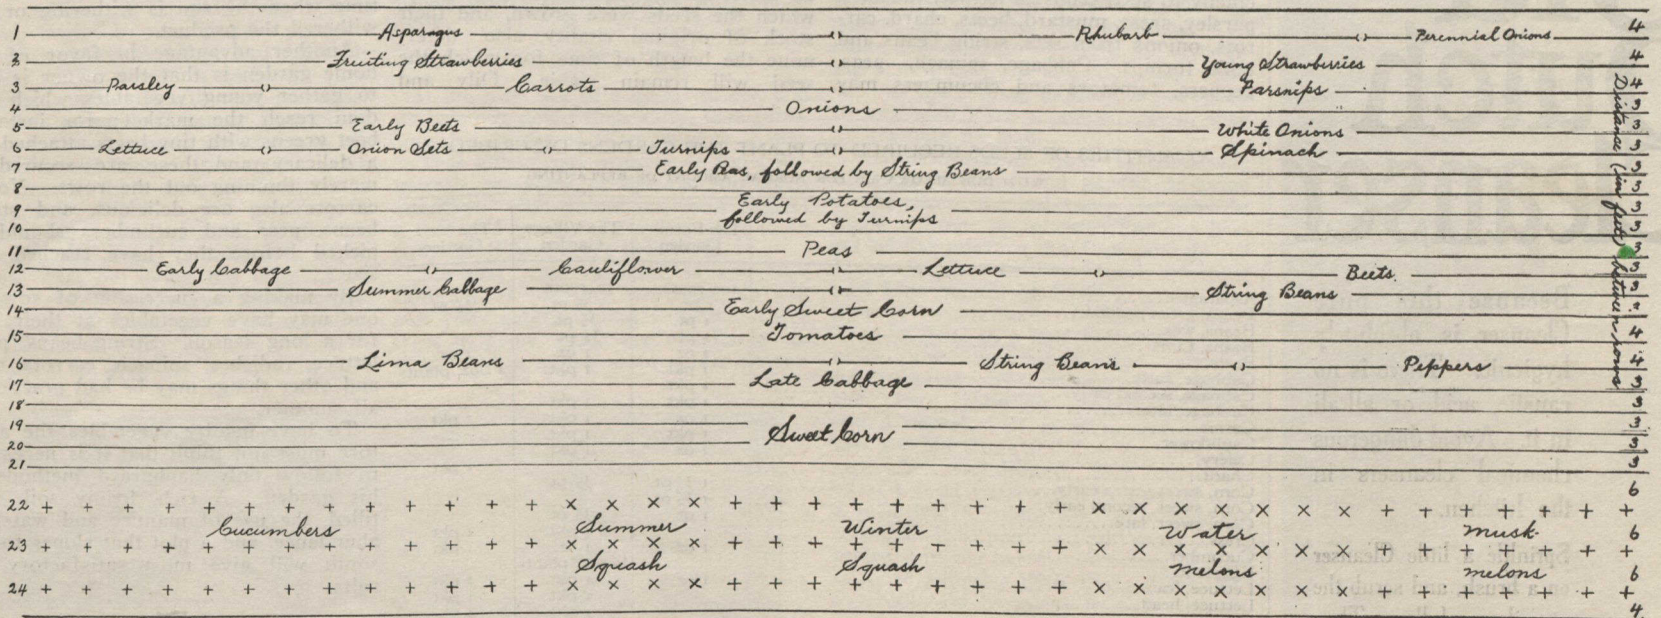 4
1 Asparagus Rhubarb Perennial Onions
4
2 Fruiting Strawberries Young Strawberries
4
3 Parsley Carrots Parsnips
3
4 Onions
3
5 Early Beets White Onions
3
6 Lettuce Onion Sets Turnips Spinach
3
7 Early Peas, followed by String Beans
3
8
3
9 Early Potatoes,
followed by Turnips
3
10
3
11 Peas
3
12 Early Cabbage Cauliflower Lettuce Beets.
3
13 Summer Cabbage String Beans
14 Early Sweet Corn
4
15 Tomatoes
4
16 Lima Beans String Beans Peppers
3
17 Late Cabbage
3
18
3
19 Sweet Corn
3
20
3
21
6
22
Cucumbers Summer Winter Water Musk-
6
23
Squash Squash melons melons
6
24
4
Distance (in feet) between rows